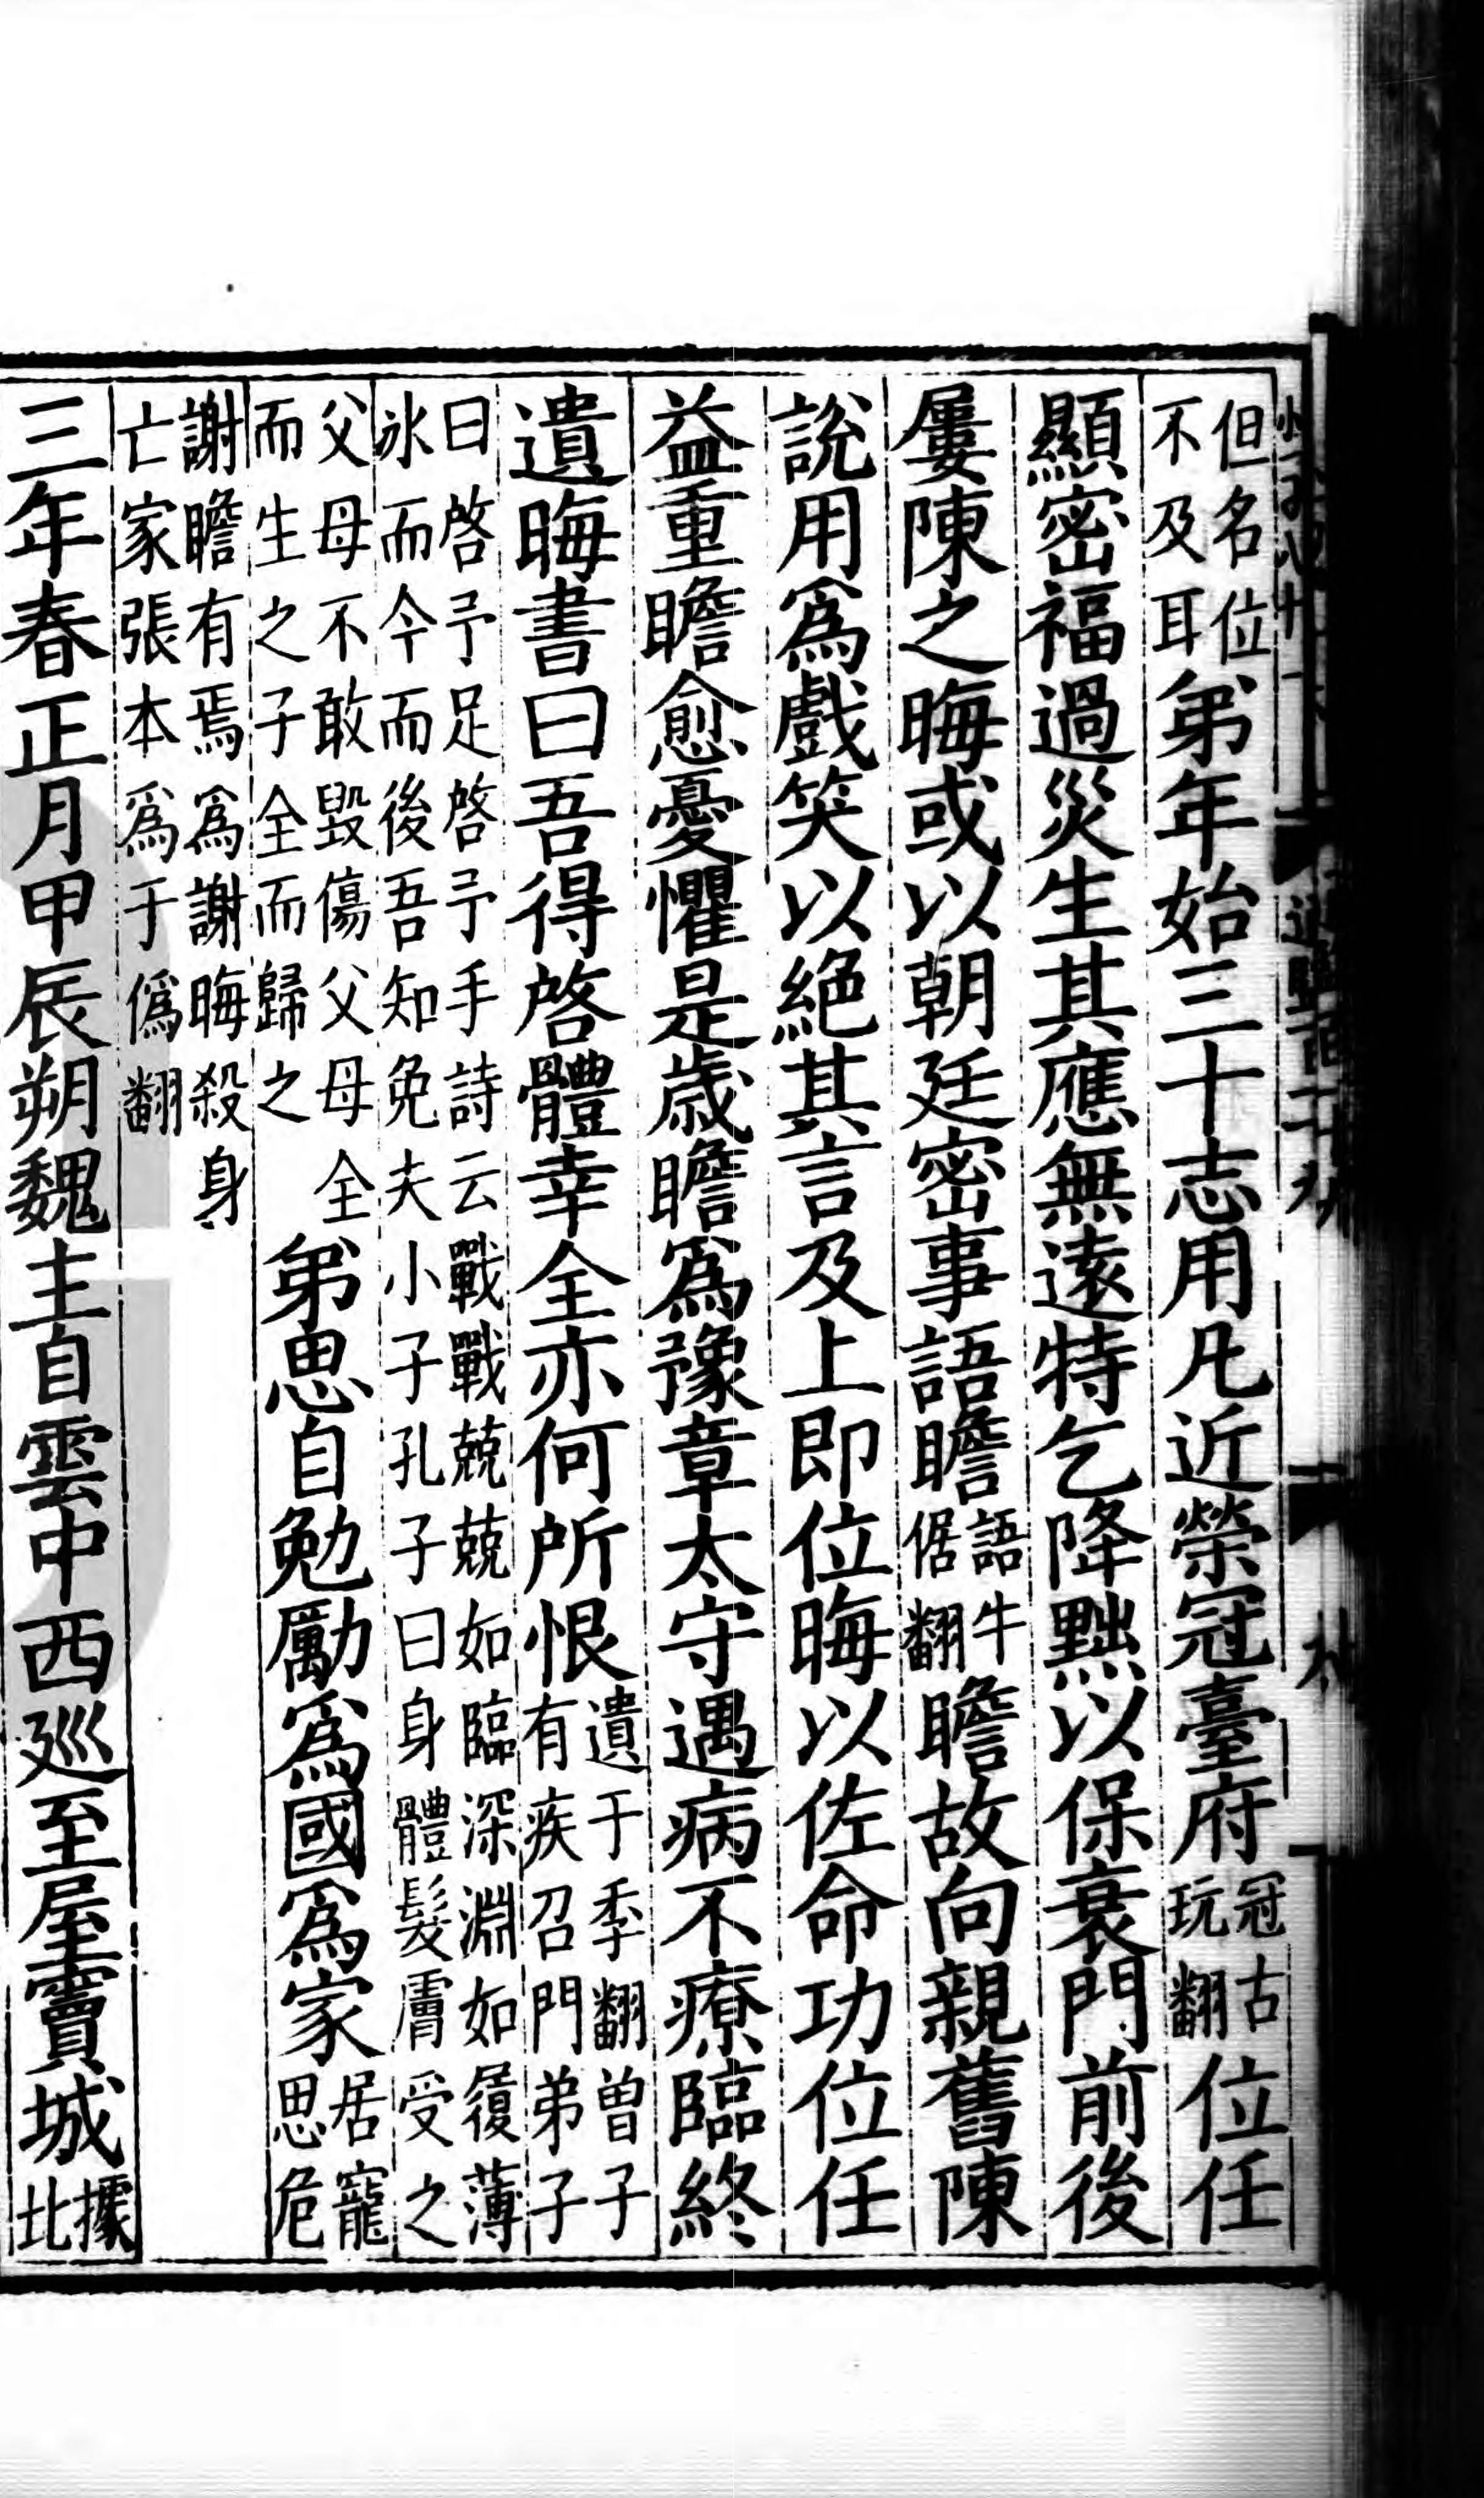 但名位不及耳弟年始三十志用凡近榮冠臺府冠古玩翻位任
顯密福過災生其應無遠特乞降黜以保衰門前後
屢陳之晦或以朝廷密事語瞻語牛倨翻瞻故向親舊陳
說用爲戲笑以絕其言及上即位晦以佐命功位任
益重瞻愈憂懼是歲瞻爲豫章太守遇病不療臨終
遺晦書曰吾得啓體幸全亦何所恨遺于季翻曾子有疾召門弟子
曰啓予足啓予手詩云戰戰兢兢如臨深淵如履薄冰而今而後吾知免夫小子孔子曰身體髮膚受之
父母不敢毀傷父母全而生之子全而歸之弟思自勉厲爲國爲家居寵思危
謝瞻有焉爲謝晦殺身亡家張本爲于僞翻
三年春正月甲辰朔魏主自雲中西巡至屋竇城據北